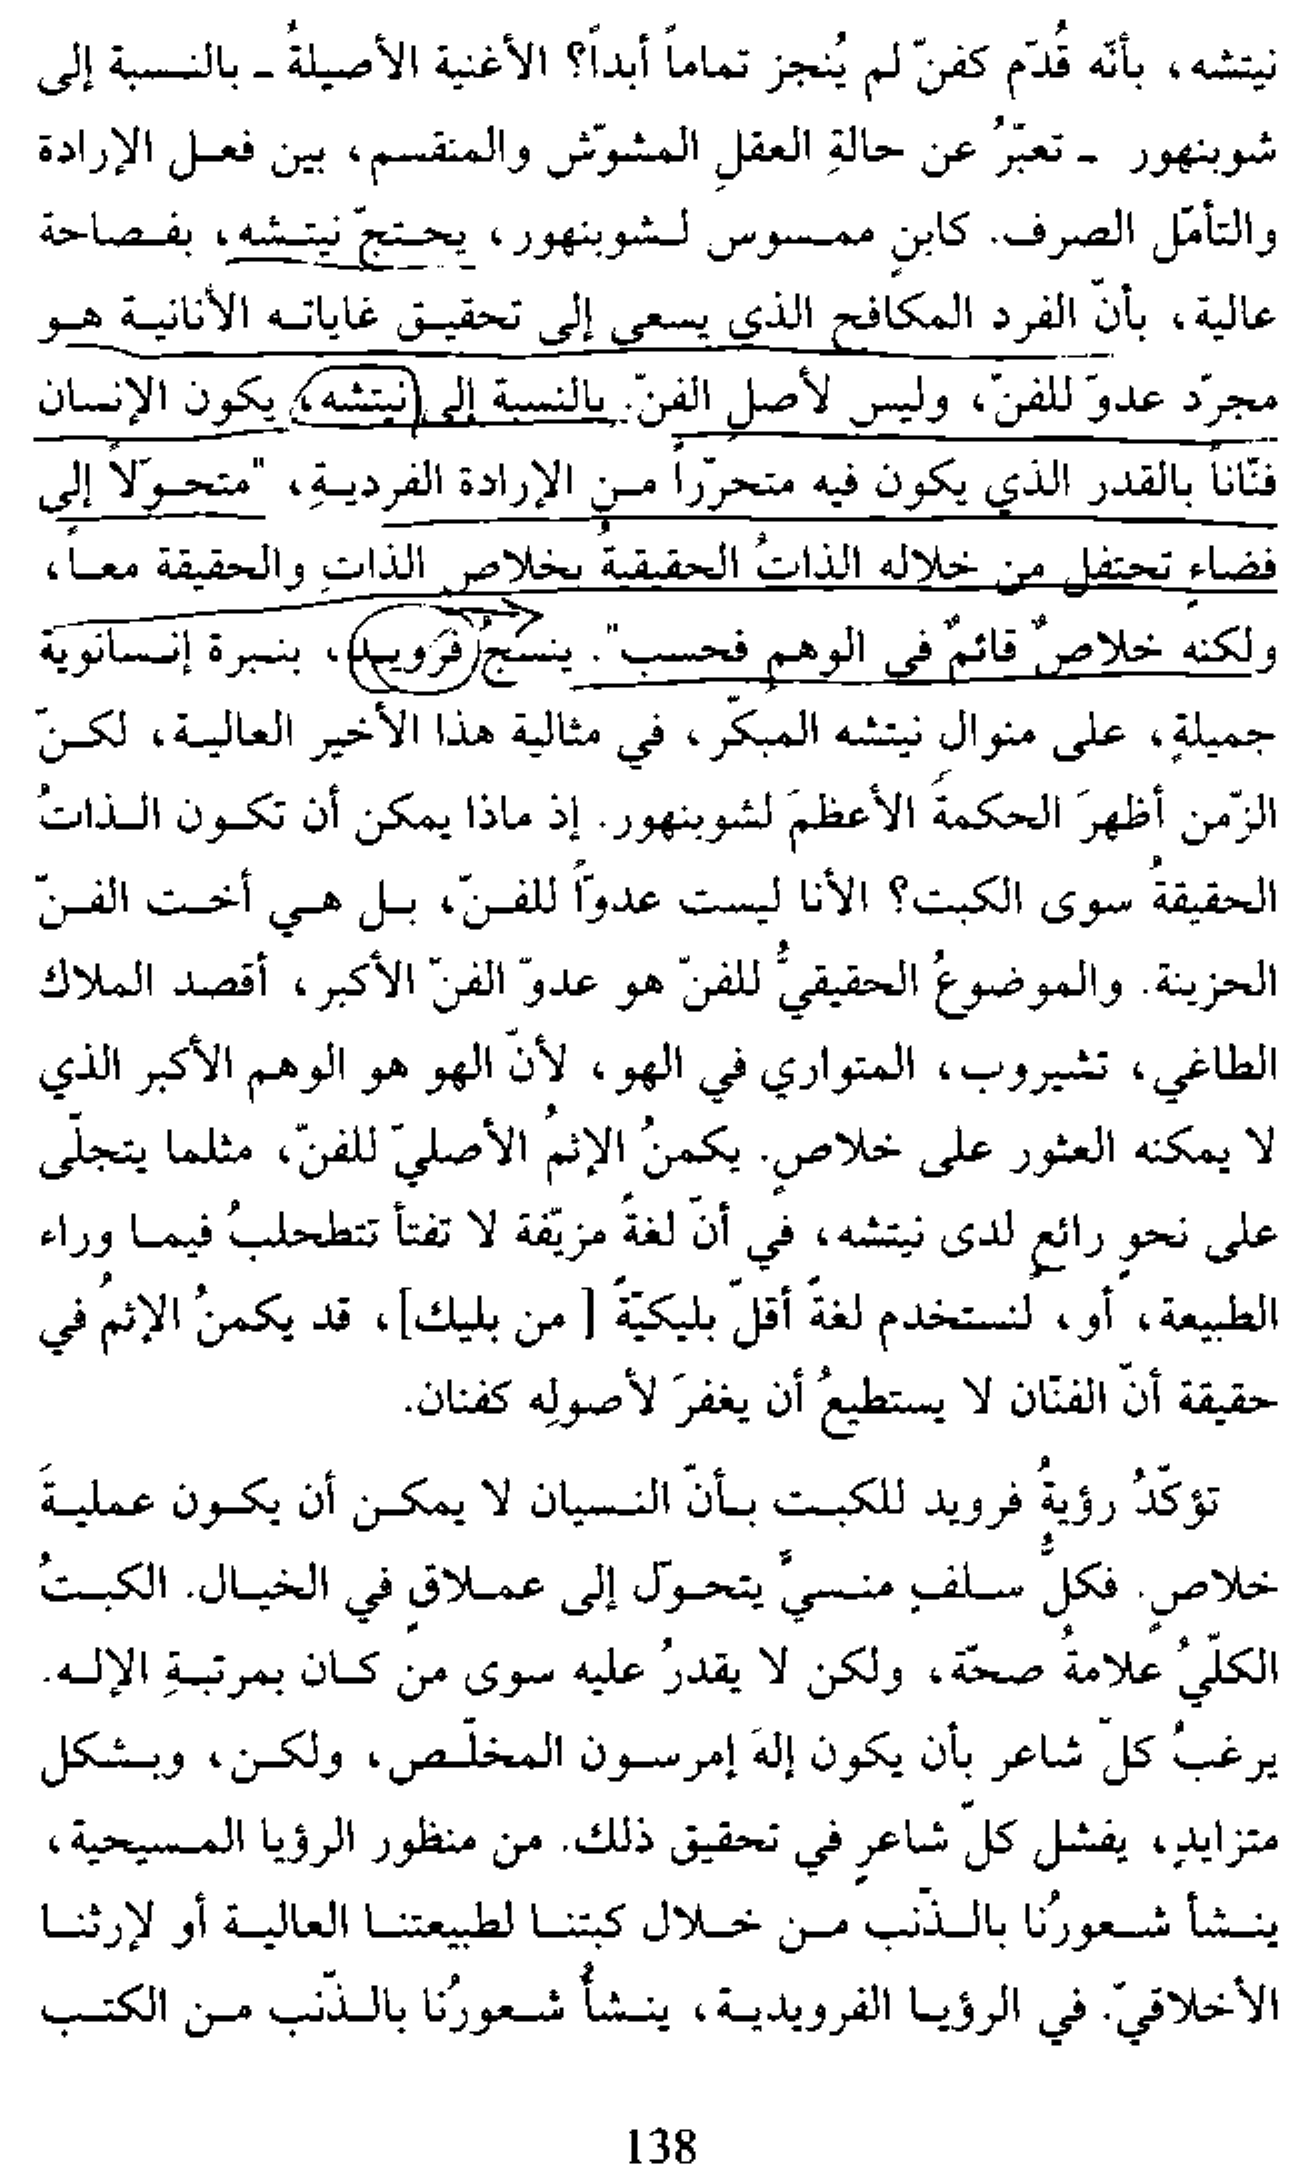 نيتشه، بأنّه قُدّم كفنّ لم يُنجز تماماً أبداً؟ الأغنية الأصيلةُ ـ بالنسبة إلى
شوبنهور ـ تعبّرُ عن حالةِ العقلِ المشوّش والمنقسم، بين فعل الإرادة
والتأمّل الصرف. كابنٍ ممسوس لشوبنهور، يحتجّ نيتشه، بفصاحة
عالية، بأنّ الفرد المكافح الذي يسعى إلى تحقيق غاياته الأنانية هو
مجرّد عدوّ للفنّ، وليس لأصلِ الفنّ. بالنسبة إلى نيتشه، يكون الإنسان
فنّاناً بالقدر الذي يكون فيه متحرّراً من الإرادة الفرديةِ، "متحوّلاً إلى
فضاءٍ تحتفل من خلاله الذاتُ الحقيقيةُ بخلاصِ الذاتِ والحقيقة معاً،
ولكنه خلاصٌ قائمٌ في الوهمِ فحسب". ينسجُ فرَويد، بنبرة إنسانوية
جميلةٍ، على منوالِ نيتشه المبكّر، في مثالية هذا الأخير العالية، لكنّ
الزّمن أظهرَ الحكمةَ الأعظمَ لشوبنهور. إذ ماذا يمكن أن تكون الذاتُ
الحقيقةُ سوى الكبت؟ الأنا ليست عدوّاً للفنّ، بل هي أخت الفنّ
الحزينة. والموضوعُ الحقيقيُّ للفنّ هو عدوّ الفنّ الأكبر، أقصد الملاك
الطاغي، تشيروب، المتواري في الهو، لأنّ الهو هو الوهم الأكبر الذي
لا يمكنه العثور على خلاصٍ. يكمنُ الإثمُ الأصليّ للفنّ، مثلما يتجلّى
على نحوٍ رائعٍ لدى نيتشه، في أنّ لغةً مزيّفة لا تفتأ تتطحلبُ فيما وراء
الطبيعة، أو، لنستخدم لغةً أقلّ بليكيّةً [ من بليك]، قد يكمنُ الإثمُ في
حقيقة أنّ الفنّان لا يستطيعُ أن يغفرَ لأصولِه كفنان.
تؤكّدُ رؤيةُ فرويد للكبت بأنّ النسيان لا يمكن أن يكون عمليةَ
خلاصٍ. فكلُّ سلفٍ منسيٍّ يتحوّل إلى عملاقٍ في الخيال. الكبتُ
الكلّيُ علامةُ صحّة، ولكن لا يقدرُ عليه سوى من كان بمرتبةِ الإله.
يرغبُ كلّ شاعر بأن يكون إلهَ إمرسون المخلّص، ولكن، وبشكل
متزايدٍ، يفشل كلّ شاعرٍ في تحقيق ذلك. من منظور الرؤيا المسيحية،
ينشأ شعورُنا بالذّنب من خلال كبتنا لطبيعتنا العالية أو لإرثنا
الأخلاقيّ. في الرؤيا الفرويدية، ينشأُ شعورُنا بالذّنب من الكتب
138